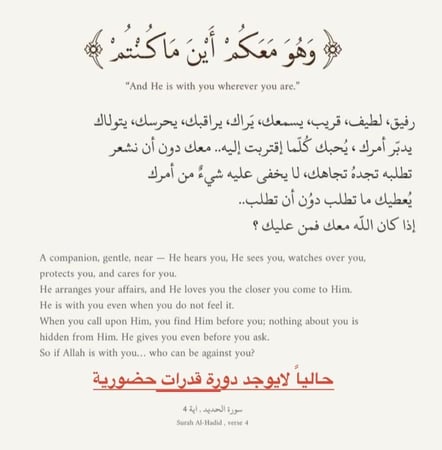 ﴿ وَهُوَ مَعَكُمْ أَيْنَ مَا كُنْتُمْ ﴾
“And He is with you wherever you are.”
رفيق، لطيف، قريب، يسمعك، يَراك، يراقبك، يحرسك، يتولاك
يدبّر أمرك ، يُحبك كُلّما إقتربت إليه.. معك دون أن نشعر
تطلبه تجدهُ تجاهك، لا يخفى عليه شيءٌ من أمرك
يُعطيك ما تطلب دوُن أن تطلب..
إذا كان اللّه معك فمن عليك ؟
A companion, gentle, near — He hears you, He sees you, watches over you,
protects you, and cares for you.
He arranges your affairs, and He loves you the closer you come to Him.
He is with you even when you do not feel it.
When you call upon Him, you find Him before you; nothing about you is
hidden from Him. He gives you even before you ask.
So if Allah is with you… who can be against you?
حالياً لايوجد دورة قدرات حضورية
سورة الحديد , اية 4
Surah Al-Hadid , verse 4